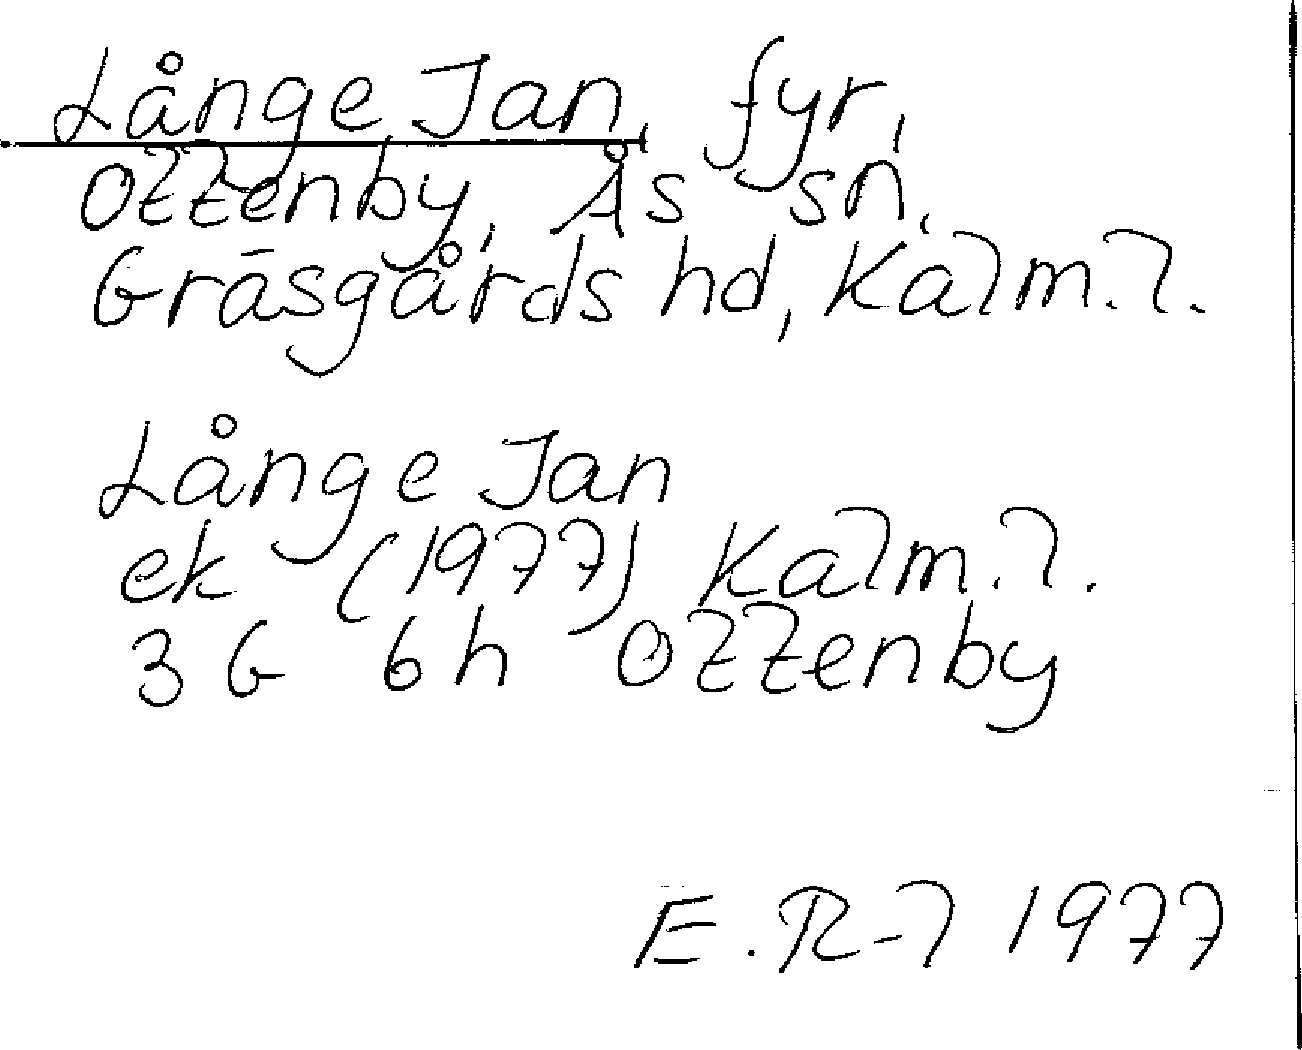 Långe Jan, fyr,
Ottenby, Ås sn,
Gräsgårds hd, Kalm. l.
Långe Jan
ek (1977) Kalm. l.
3 G 6 h Ottenby
E. R-l 1977